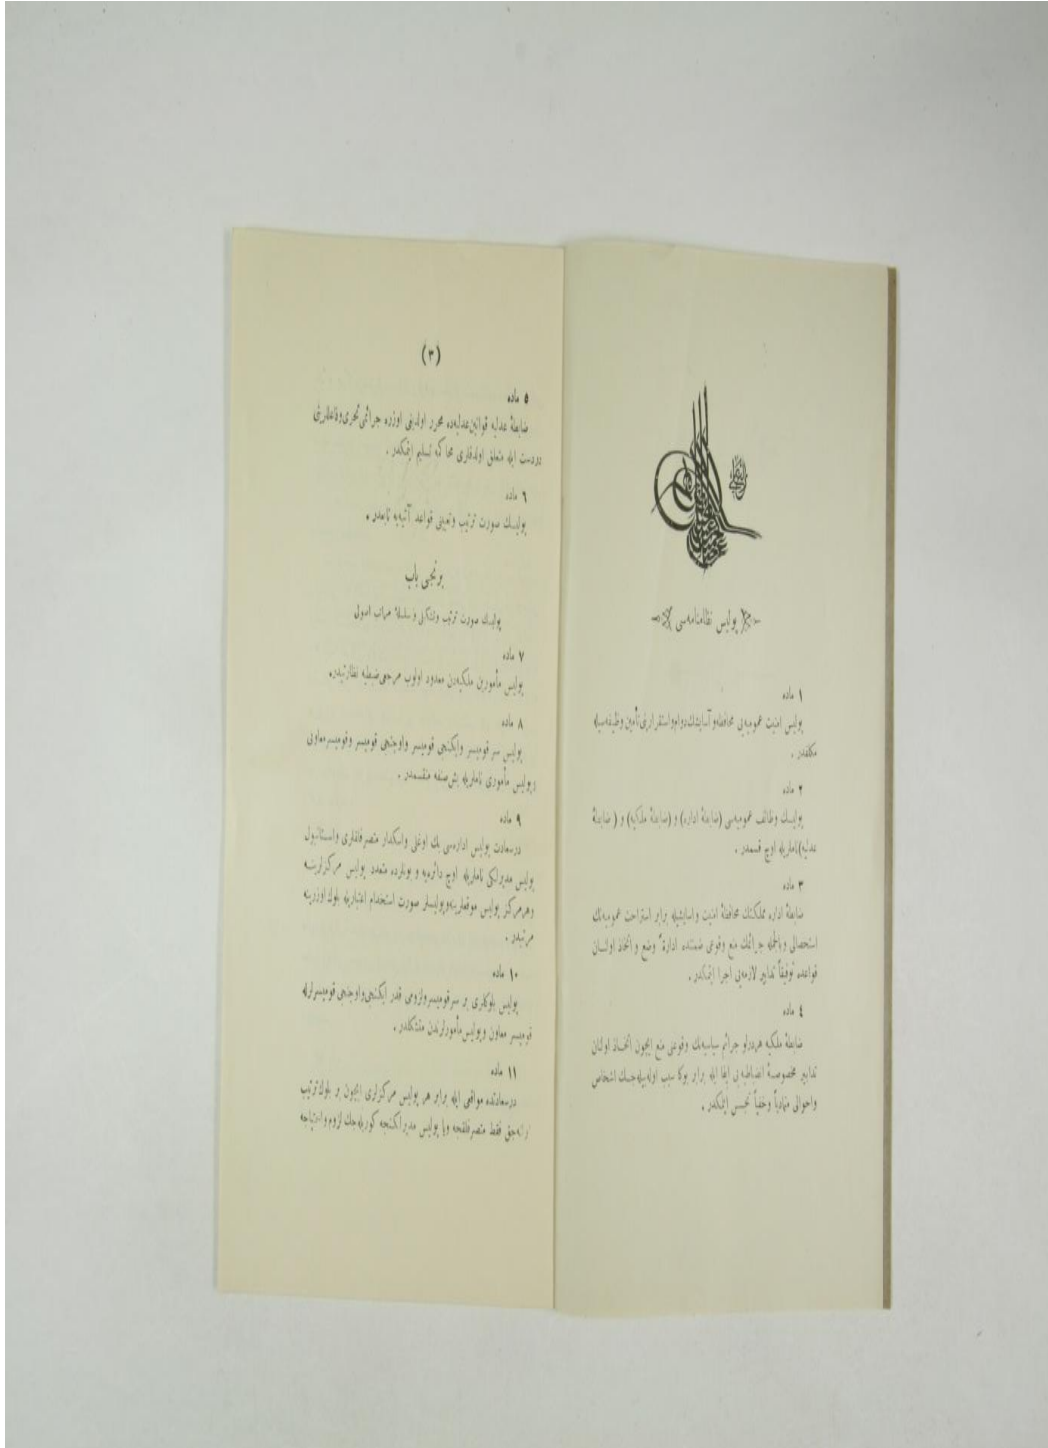 پولیس نظامنامه‌سی
۱ ماده
پولیس امنیت عمومیه‌یی محافظه و آسایشك دوام و استقرارینی تأمین وظیفه‌سیله
مكلفدر .
۲ ماده
پولیسك وظائف عمومیه‌سی (ضابطهٔ اداره) و (ضابطهٔ ملكیه) و (ضابطهٔ
عدلیه) ناملریله اوچ قسمدر .
۳ ماده
ضابطهٔ اداره مملكتك محافظهٔ امنیت و آسایشیله برابر استراحت عمومیه‌نك
استحصالی و بالجمله جرائمك منع وقوعی ضمننده ادارةً وضع و اتخاذ اولنان
قواعده توفیقاً تدابیر لازمه‌یی اجرا ایتمكدر .
٤ ماده
ضابطهٔ ملكیه هردرلو جرائم سیاسیه‌نك وقوعنی منع ایچون اتخاذ اولنان
تدابیر مخصوصهٔ انضباطیه‌یی ایفا ایله برابر بوكا سبب اوله‌بیله‌جك اشخاص
واحوالی متمادیاً وخفیاً تجسس ایتمكدر .
(۳)
٥ ماده
ضابطهٔ عدلیه قوانین عدلیه‌ده محرر اولدیغی اوزره جرائمی تحری وفاعللرینی
دردست ایله متعلق اولدقلری محاكمه تسلیم ایتمكدر .
٦ ماده
پولیسك صورت ترتیب وتعیینی قواعد آتیه‌یه تابعدر .
برنجی باب
پولیسك صورت ترتیب وتشكلی و سلسلهٔ مراتب اصول
۷ ماده
پولیس مأمورین ملكیه‌دن معدود اولوب مرجعی ضبطیه نظارتیدر .
۸ ماده
پولیس سر قومیسر وایكنجی قومیسر واوچنجی قومیسر وقومیسر معاونی
وپولیس مأموری ناملریله بش صنفه منقسمدر .
۹ ماده
درسعادت پولیس اداره‌سی بك اوغلی واسكدار متصرفلقلری واستانبول
پولیس مدیرلكی ناملریله اوچ دائره‌یه و بونلرده متعدد پولیس مركزلرینه
وهر مركز پولیس موقعلرینه وپولیسلر صورت استخدام اعتباریله بلوك اوزرینه
مرتبدر .
۱۰ ماده
پولیس بلوكلری بر سر قومیسر ولزومی قدر ایكنجی واوچنجی قومیسرلرله
قومیسر معاون وپولیس مأمورلرندن متشكلدر .
۱۱ ماده
درسعادتده مواقعی ایله برابر هر پولیس مركزلری ایچون بر بلوك ترتیب
اولنه‌جق فقط متصرفلقجه ویا پولیس مدیرلكنجه كوریله‌جك لزوم واحتیاجه